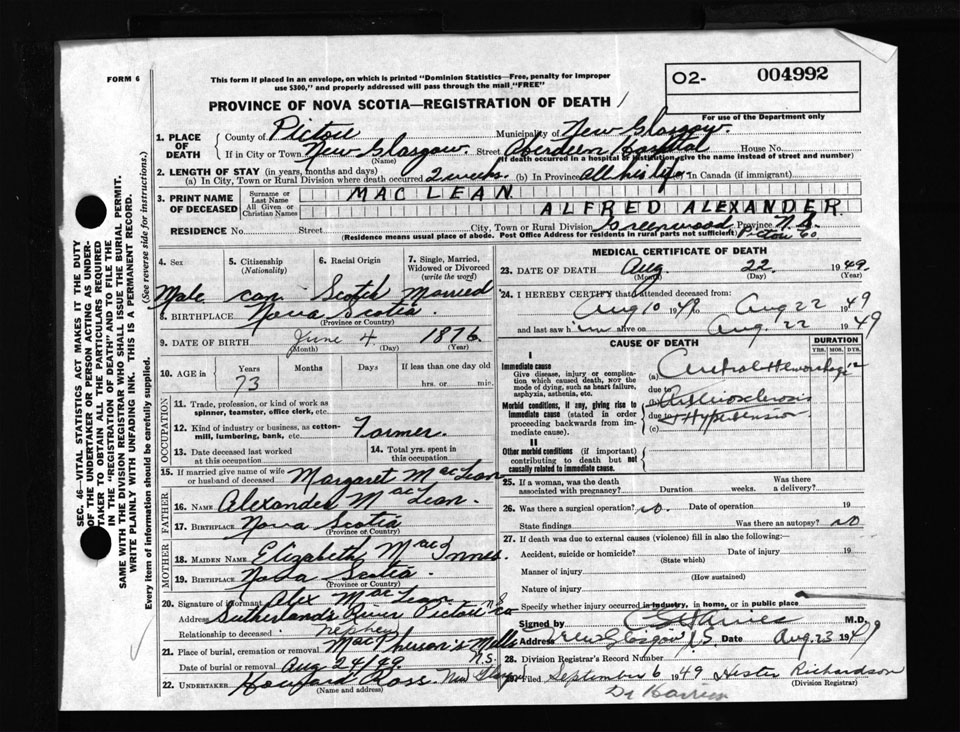 FORM 6
This form if placed in an envelope, on which is printed "Dominion Statistics—Free, penalty for improper
use $300," and properly addressed will pass through the mail "FREE"
O2- 004992
For use of the Department only
PROVINCE OF NOVA SCOTIA—REGISTRATION OF DEATH
1. PLACE OF DEATH
County of Pictou Municipality of New Glasgow.
If in City or Town New Glasgow. Street Aberdeen Hospital House No.
(Name) (If death occurred in a hospital or institution, give the name instead of street and number)
2. LENGTH OF STAY (in years, months and days)
(a) In City, Town or Rural Division where death occurred 2 weeks. (b) In Province All his life (c) In Canada (if immigrant)
3. PRINT NAME OF DECEASED
Surname or Last Name MAC LEAN
All Given or Christian Names ALFRED ALEXANDER
RESIDENCE No. Street City, Town or Rural Division Greenwood Province N.S.
(Residence means usual place of abode. Post Office Address for residents in rural parts not sufficient) Pictou Co
4. Sex Male
5. Citizenship (Nationality) can
6. Racial Origin Scotch
7. Single, Married, Widowed or Divorced (write the word) Married
8. BIRTHPLACE Nova Scotia.
(Province or Country)
9. DATE OF BIRTH June 4. 1876
(Month) (Day) (Year)
10. AGE in Years 73 Months Days If less than one day old
hrs. or min.
OCCUPATION
11. Trade, profession, or kind of work as spinner, teamster, office clerk, etc.
12. Kind of industry or business, as cotton-mill, lumbering, bank, etc. Farmer.
13. Date deceased last worked at this occupation
14. Total yrs. spent in this occupation
15. If married give name of wife or husband of deceased Margaret MacLean
FATHER
16. NAME Alexander MacLean.
17. BIRTHPLACE Nova Scotia
MOTHER
18. MAIDEN NAME Elizabeth MacInnes.
19. BIRTHPLACE Nova Scotia.
(Province or Country)
20. Signature of informant Alex MacLean
Address Sutherlands River Pictou Co N.S
Relationship to deceased nephew
21. Place of burial, cremation or removal MacPherson's Mills N.S.
Date of burial or removal Aug 24/49
22. UNDERTAKER Howard Ross New Glasgow
(Name and address)
MEDICAL CERTIFICATE OF DEATH
23. DATE OF DEATH Aug 22. 1949.
(Month) (Day) (Year)
24. I HEREBY CERTIFY that I attended deceased from:
Aug 10 1949 to Aug 22 1949
and last saw him alive on Aug. 22 1949
CAUSE OF DEATH
DURATION
YRS. MOS. DYS.
I
Immediate cause
Give disease, injury or complication which caused death, NOT the mode of dying, such as heart failure, asphyxia, asthenia, etc.
(a) Cerebral Hemorrhage 12
Morbid conditions, if any, giving rise to immediate cause (stated in order proceeding backwards from immediate cause).
due to
Arteriosclerosis
due to + Hypertension
(c)
II
Other morbid conditions (if important) contributing to death but not causally related to immediate cause.
25. If a woman, was the death associated with pregnancy? Duration weeks. Was there a delivery?
26. Was there a surgical operation? no. Date of operation 19
State findings Was there an autopsy? no
27. If death was due to external causes (violence) fill in also the following:
Accident, suicide or homicide? Date of injury 19
(State which)
Manner of injury
(How sustained)
Nature of injury
Specify whether injury occurred in industry, in home, or in public place
Signed by M.D.
Address New Glasgow N.S. Date Aug. 23 1949
28. Division Registrar's Record Number
Filed September 6 1949 Hester Richardson
(Division Registrar)
Dr Harries
SEC. 46—VITAL STATISTICS ACT MAKES IT THE DUTY
OF THE UNDERTAKER OR PERSON ACTING AS UNDER-
TAKER TO OBTAIN ALL THE PARTICULARS REQUIRED
IN THE "REGISTRATION OF DEATH" AND TO FILE THE
SAME WITH THE DIVISION REGISTRAR WHO SHALL ISSUE THE BURIAL PERMIT.
WRITE PLAINLY WITH UNFADING INK. THIS IS A PERMANENT RECORD.
Every item of information should be carefully supplied. (See reverse side for instructions.)